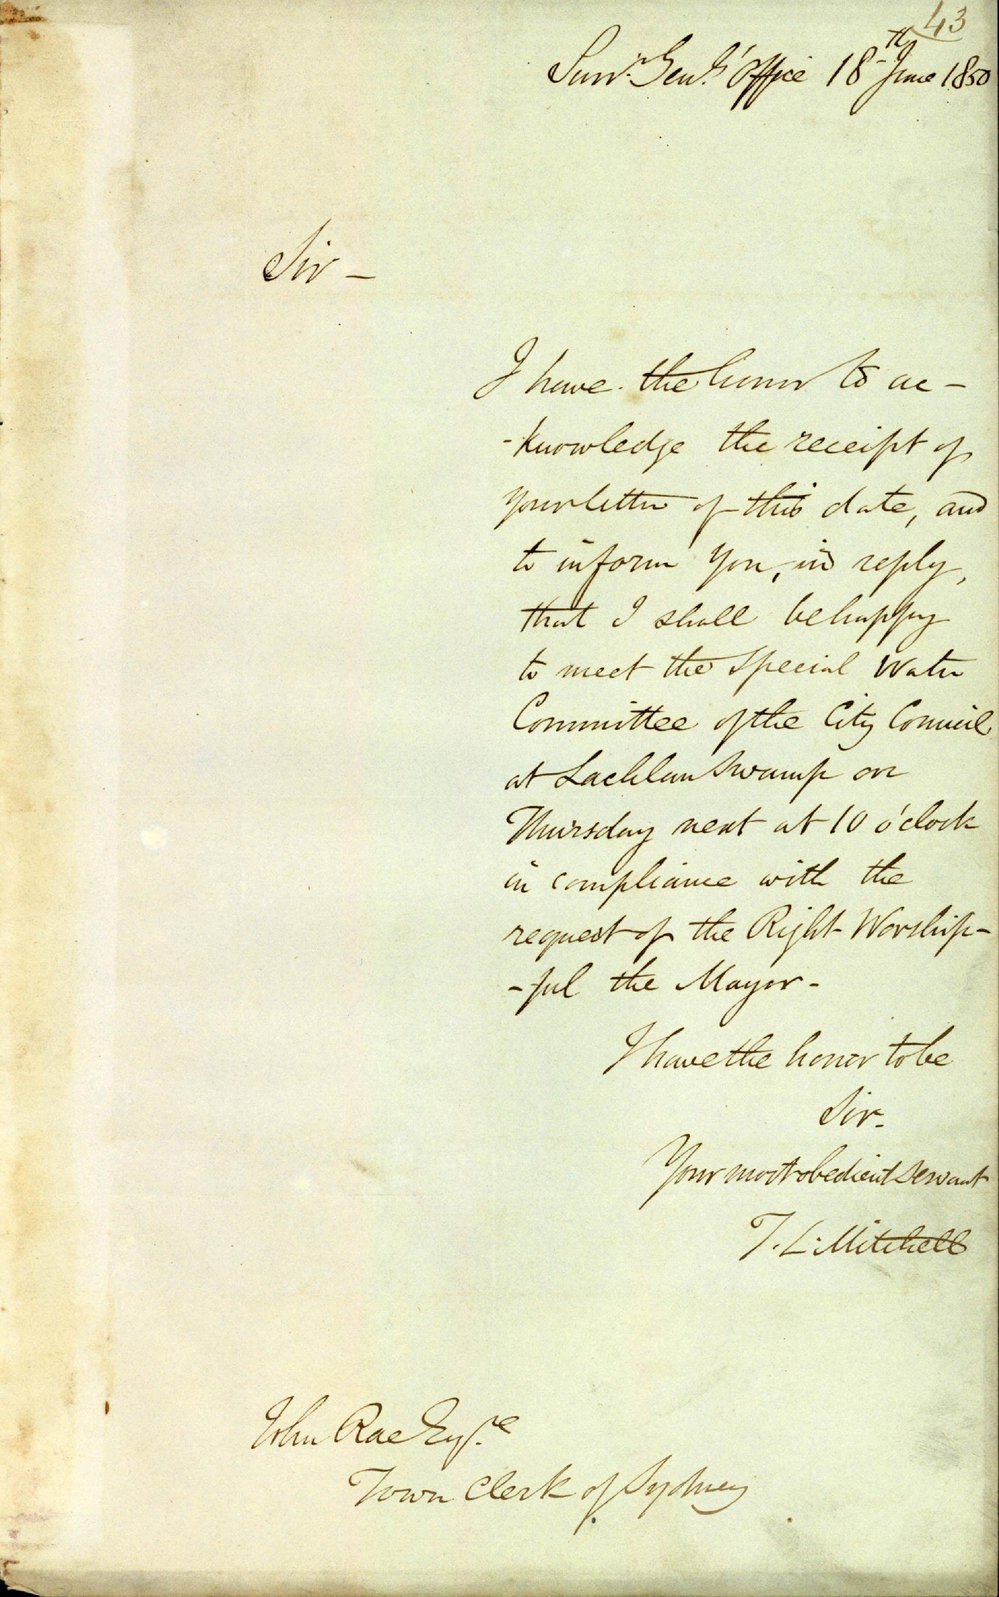 43
Surv.r Genl.s Office 18th June 1850
Sir —
I have the honor to ac-
-knowledge the receipt of
your letter of this date, and
to inform you, in reply,
that I shall be happy
to meet the Special Water
Committee of the City Council
at Lachlan Swamp on
Thursday next at 10 o'clock
in compliance with the
request of the Right Worship-
-ful the Mayor -
I have the honor to be
Sir.
Your most obedient servant
T. L. Mitchell
John Rae Esq.re
Town Clerk of Sydney